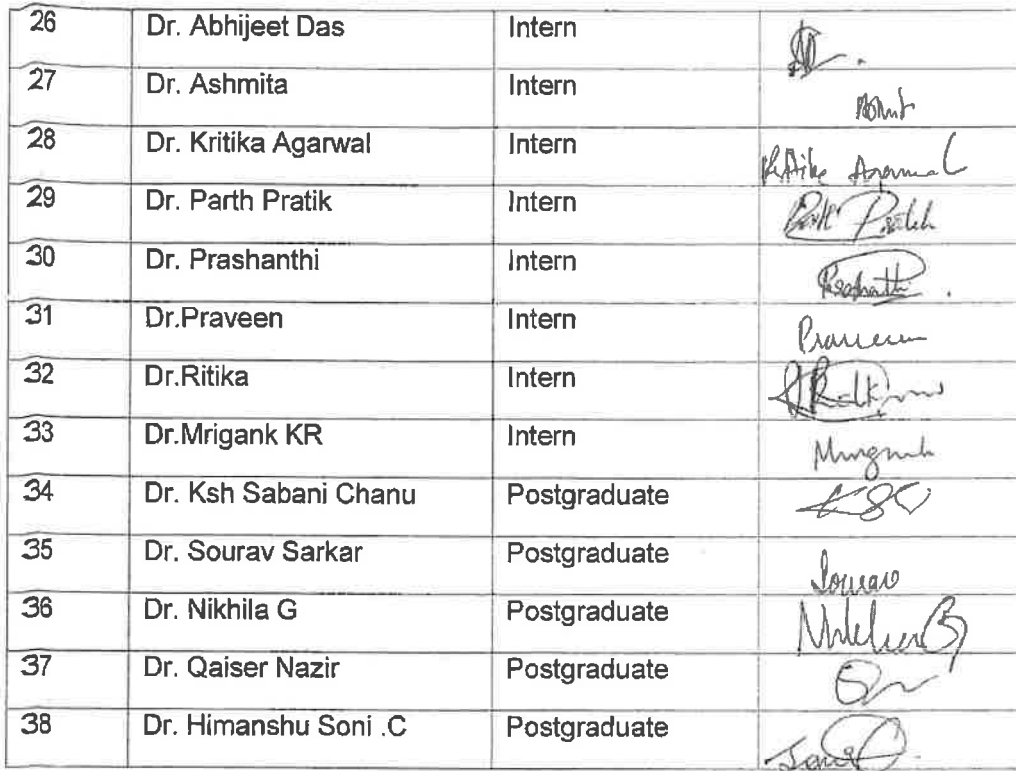 26 Dr. Abhijeet Das Intern
27 Dr. Ashmita Intern
28 Dr. Kritika Agarwal Intern
29 Dr. Parth Pratik Intern
30 Dr. Prashanthi Intern
31 Dr.Praveen Intern Praveen
32 Dr.Ritika Intern
33 Dr.Mrigank KR Intern
34 Dr. Ksh Sabani Chanu Postgraduate
35 Dr. Sourav Sarkar Postgraduate Sourav
36 Dr. Nikhila G Postgraduate
37 Dr. Qaiser Nazir Postgraduate
38 Dr. Himanshu Soni .C Postgraduate